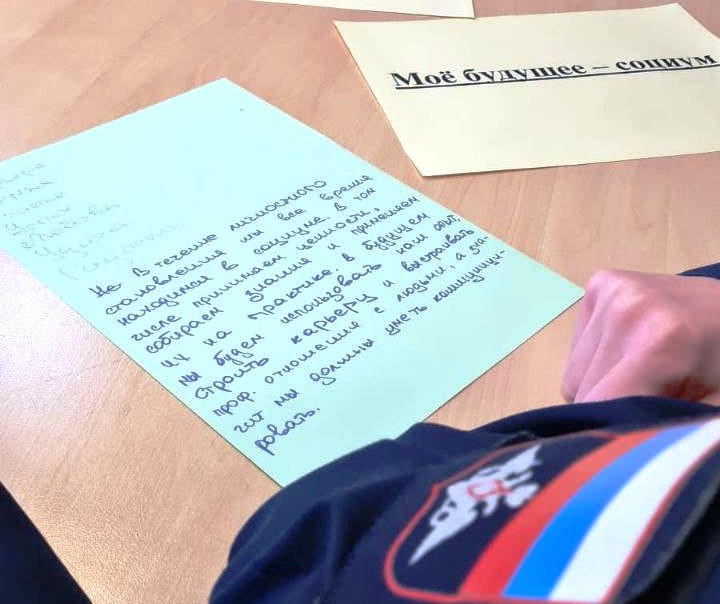 Моё будущее – социум
Но В течение личностного
становления мы все время
находимся в социуме. В том
числе принимаем ценности,
собираем знания и применяем
их на практике. В будущем
мы будем использовать наш опыт,
строить карьеру и выстраивать
проф. отношения с людьми, а зна-
чит мы должны уметь коммуници-
ровать.